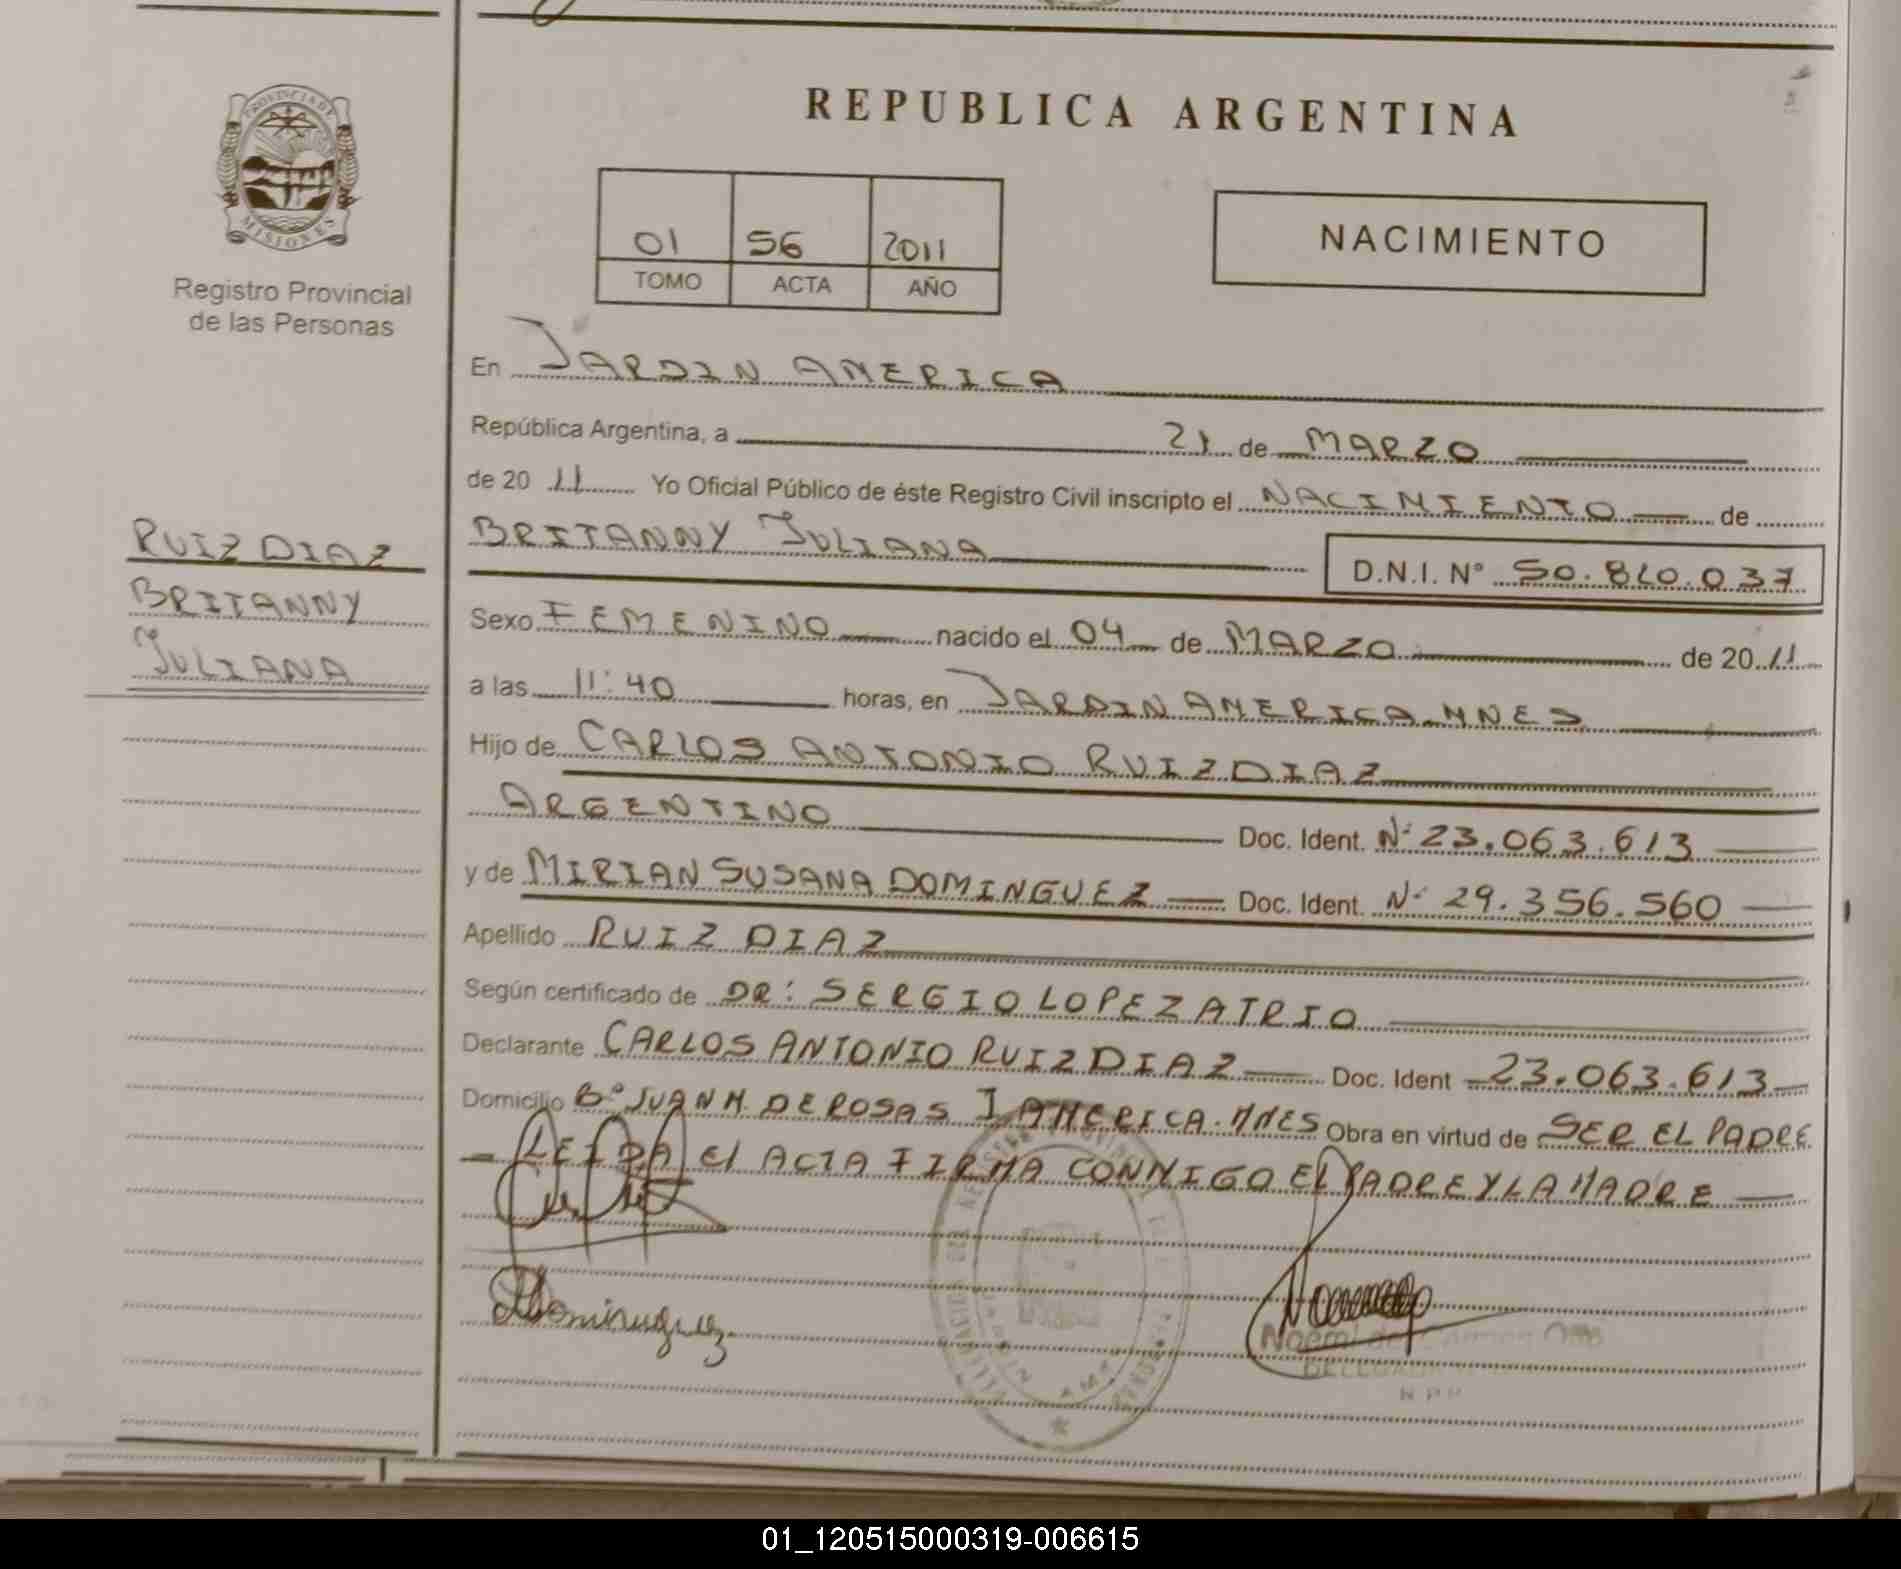 PROVINCIA DE
MISIONES
Registro Provincial
de las Personas
RUIZ DIAZ
BRITANNY
JULIANA
REPUBLICA ARGENTINA
01 56 2011
TOMO ACTA AÑO
NACIMIENTO
En JARDIN AMERICA
República Argentina, a 21 de MARZO
de 20 11 Yo Oficial Público de éste Registro Civil inscripto el NACIMIENTO de
BRITANNY JULIANA D.N.I. Nº 50.810.037
Sexo FEMENINO nacido el 04 de MARZO de 20 11
a las 11:40 horas, en JARDIN AMERICA MNES
Hijo de CARLOS ANTONIO RUIZ DIAZ
ARGENTINO Doc. Ident. Nº 23.063.613
y de MIRIAN SUSANA DOMINGUEZ Doc. Ident. Nº 29.356.560
Apellido RUIZ DIAZ
Según certificado de DR: SERGIO LOPEZ ATRIO
Declarante CARLOS ANTONIO RUIZ DIAZ Doc. Ident 23.063.613
Domicilio Bº JUAN M. DE ROSAS J AMERICA. MNES Obra en virtud de SER EL PADRE
- LEIDA El ACTA FIRMA CONMIGO EL PADRE Y LA MADRE
Dominguez
01_120515000319-006615